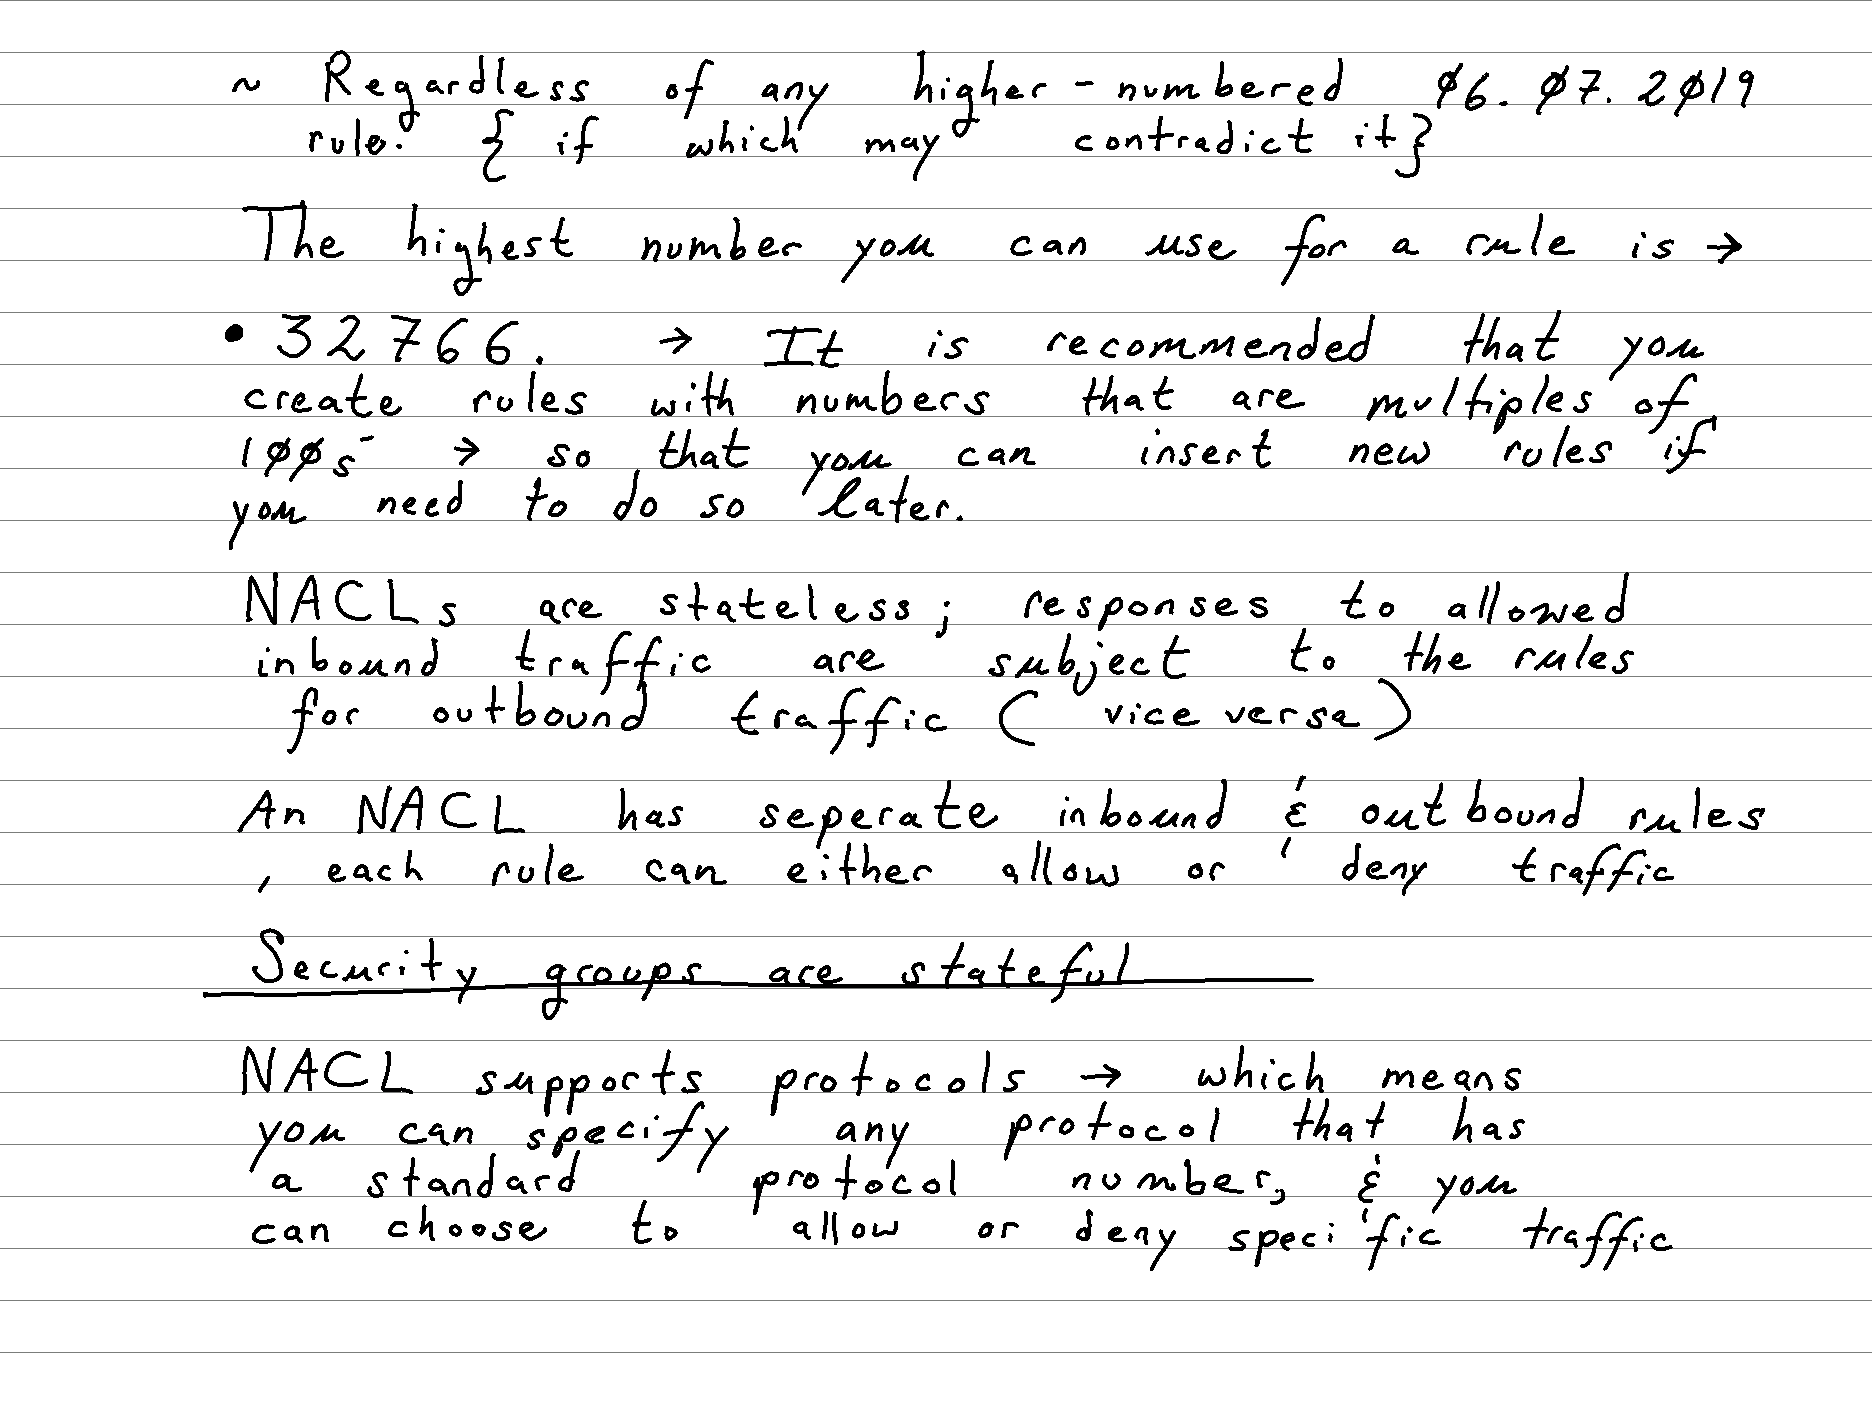 ~ Regardless of any higher-numbered Ø6. Ø7. 2Ø19
rule. { if which may contradict it}
The highest number you can use for a rule is →
• 32766. → It is recommended that you
create rules with numbers that are multiples of
1ØØs → so that you can insert new rules if
you need to do so later.
NACLs are stateless; responses to allowed
inbound traffic are subject to the rules
for outbound traffic ( vice versa)
An NACL has seperate inbound & outbound rules
, each rule can either allow or deny traffic
Security groups are stateful
NACL supports protocols → which means
you can specify any protocol that has
a standard protocol number, & you
can choose to allow or deny specific traffic